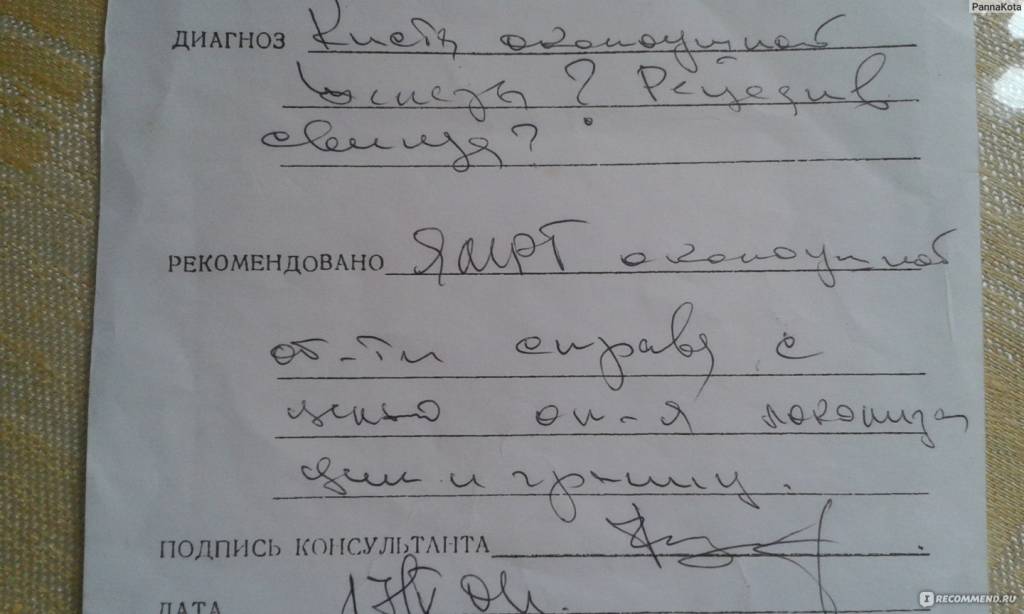 PannaKota
ДИАГНОЗ Киста околоушной
железы? Рецедив
свища?
РЕКОМЕНДОВАНО ЯМРТ околоушной
об-ти справа с
целью оп-я локализа
ции и границ.
ПОДПИСЬ КОНСУЛЬТАНТА
ДАТА
IRECOMMEND.RU